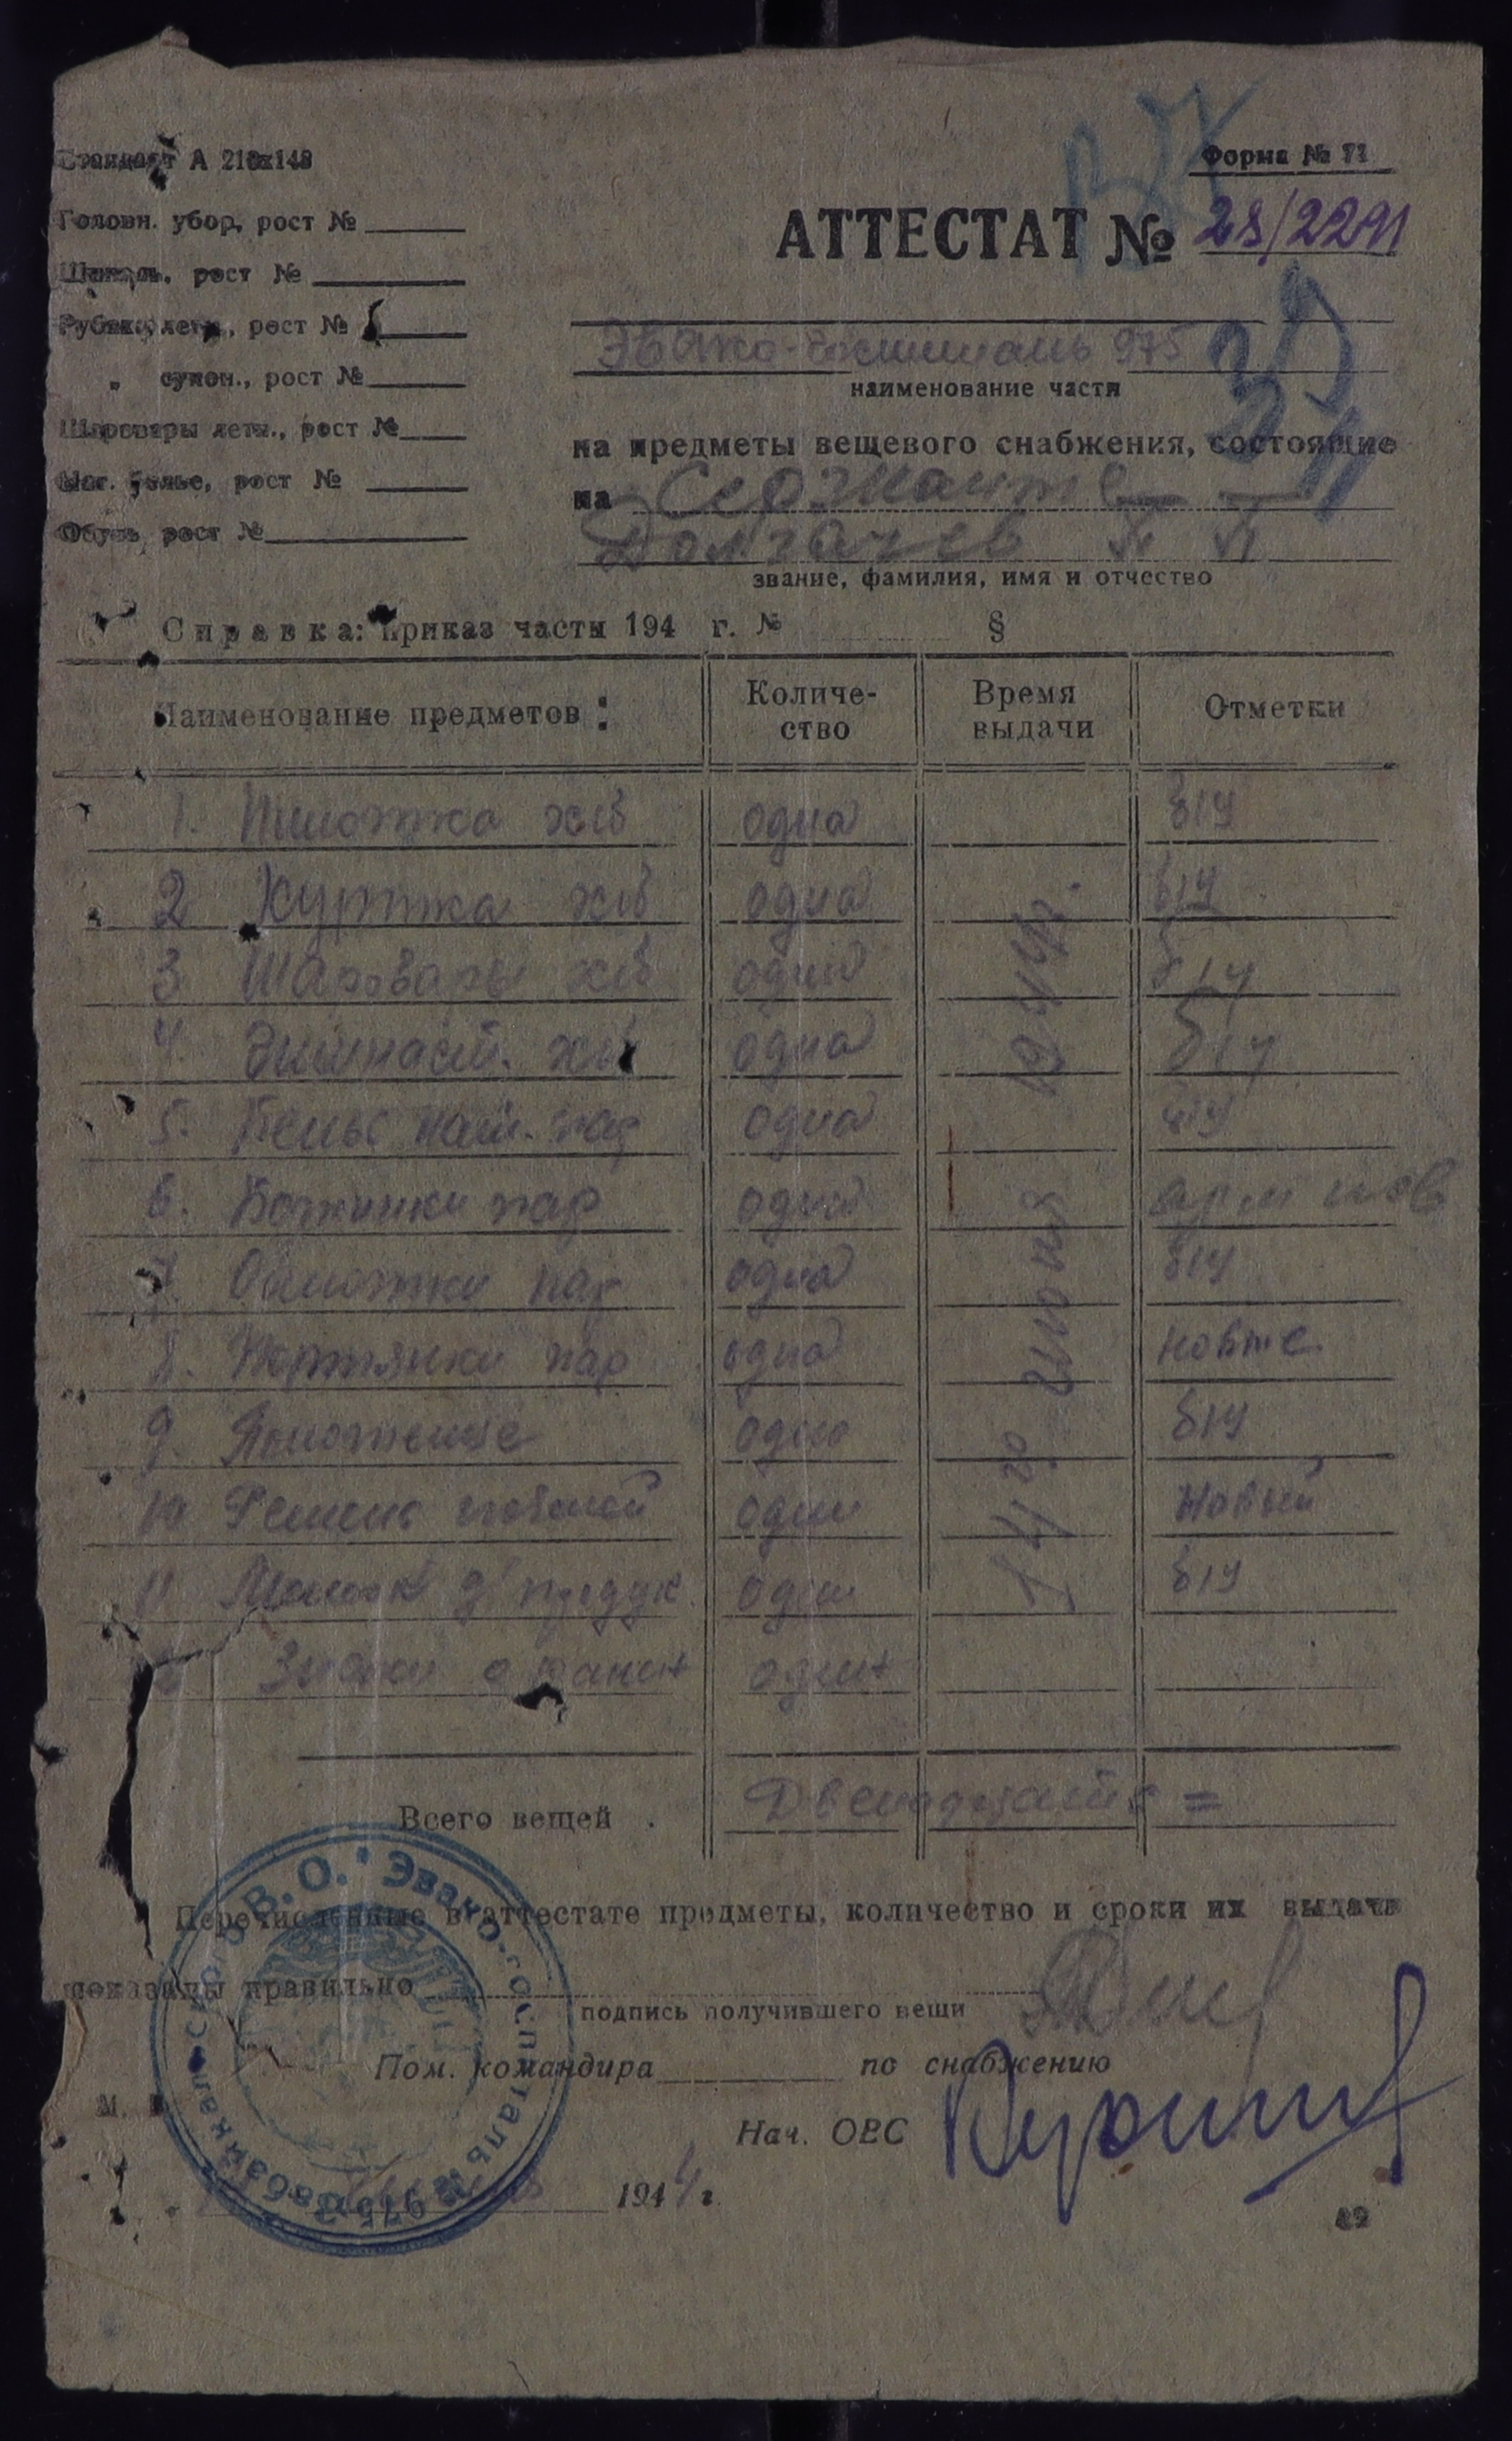 Стандарт А 210х148
Форма № 71
Головн. убор, рост №
Шинель, рост №
Рубаха летн., рост №
" сукон., рост №
Шаровары летн., рост №
Наг. белье, рост №
Обувь рост №
АТТЕСТАТ № 28/2291
Эвако-госпиталь 975
наименование части
на предметы вещевого снабжения, состоящие
на Сержанте
Долгачев П П
звание, фамилия, имя и отчество
Справка: приказ части 194 г. № §
Наименование предметов: Количе-ство Время выдачи Отметки
1. Пилотка х/б одна б/у
2 Куртка х/б одна б/у
3 Шаровары х/б одни б/у
4. Гимнаст. х/б одна б/у
5. Белье нат. пар одна б/у
6. Ботинки пар одна арм нов
7. Обмотки пар одна б/у
8. Портянки пар одна новые
9. Полотенце одно б/у
10 Ремень поясной один новый
11 Мешок д/продук. один б/у
12 один
14 го июня 1944г.
Всего вещей Двенадцать =
Перечисленные в аттестате предметы, количество и сроки их выдачи
показаны правильно
подпись получившего вещи
Пом. командира по снабжению
М. П.
Нач. ОВС
1944 г.
В.О. Эвако-госпиталь № 975 Забайкальского